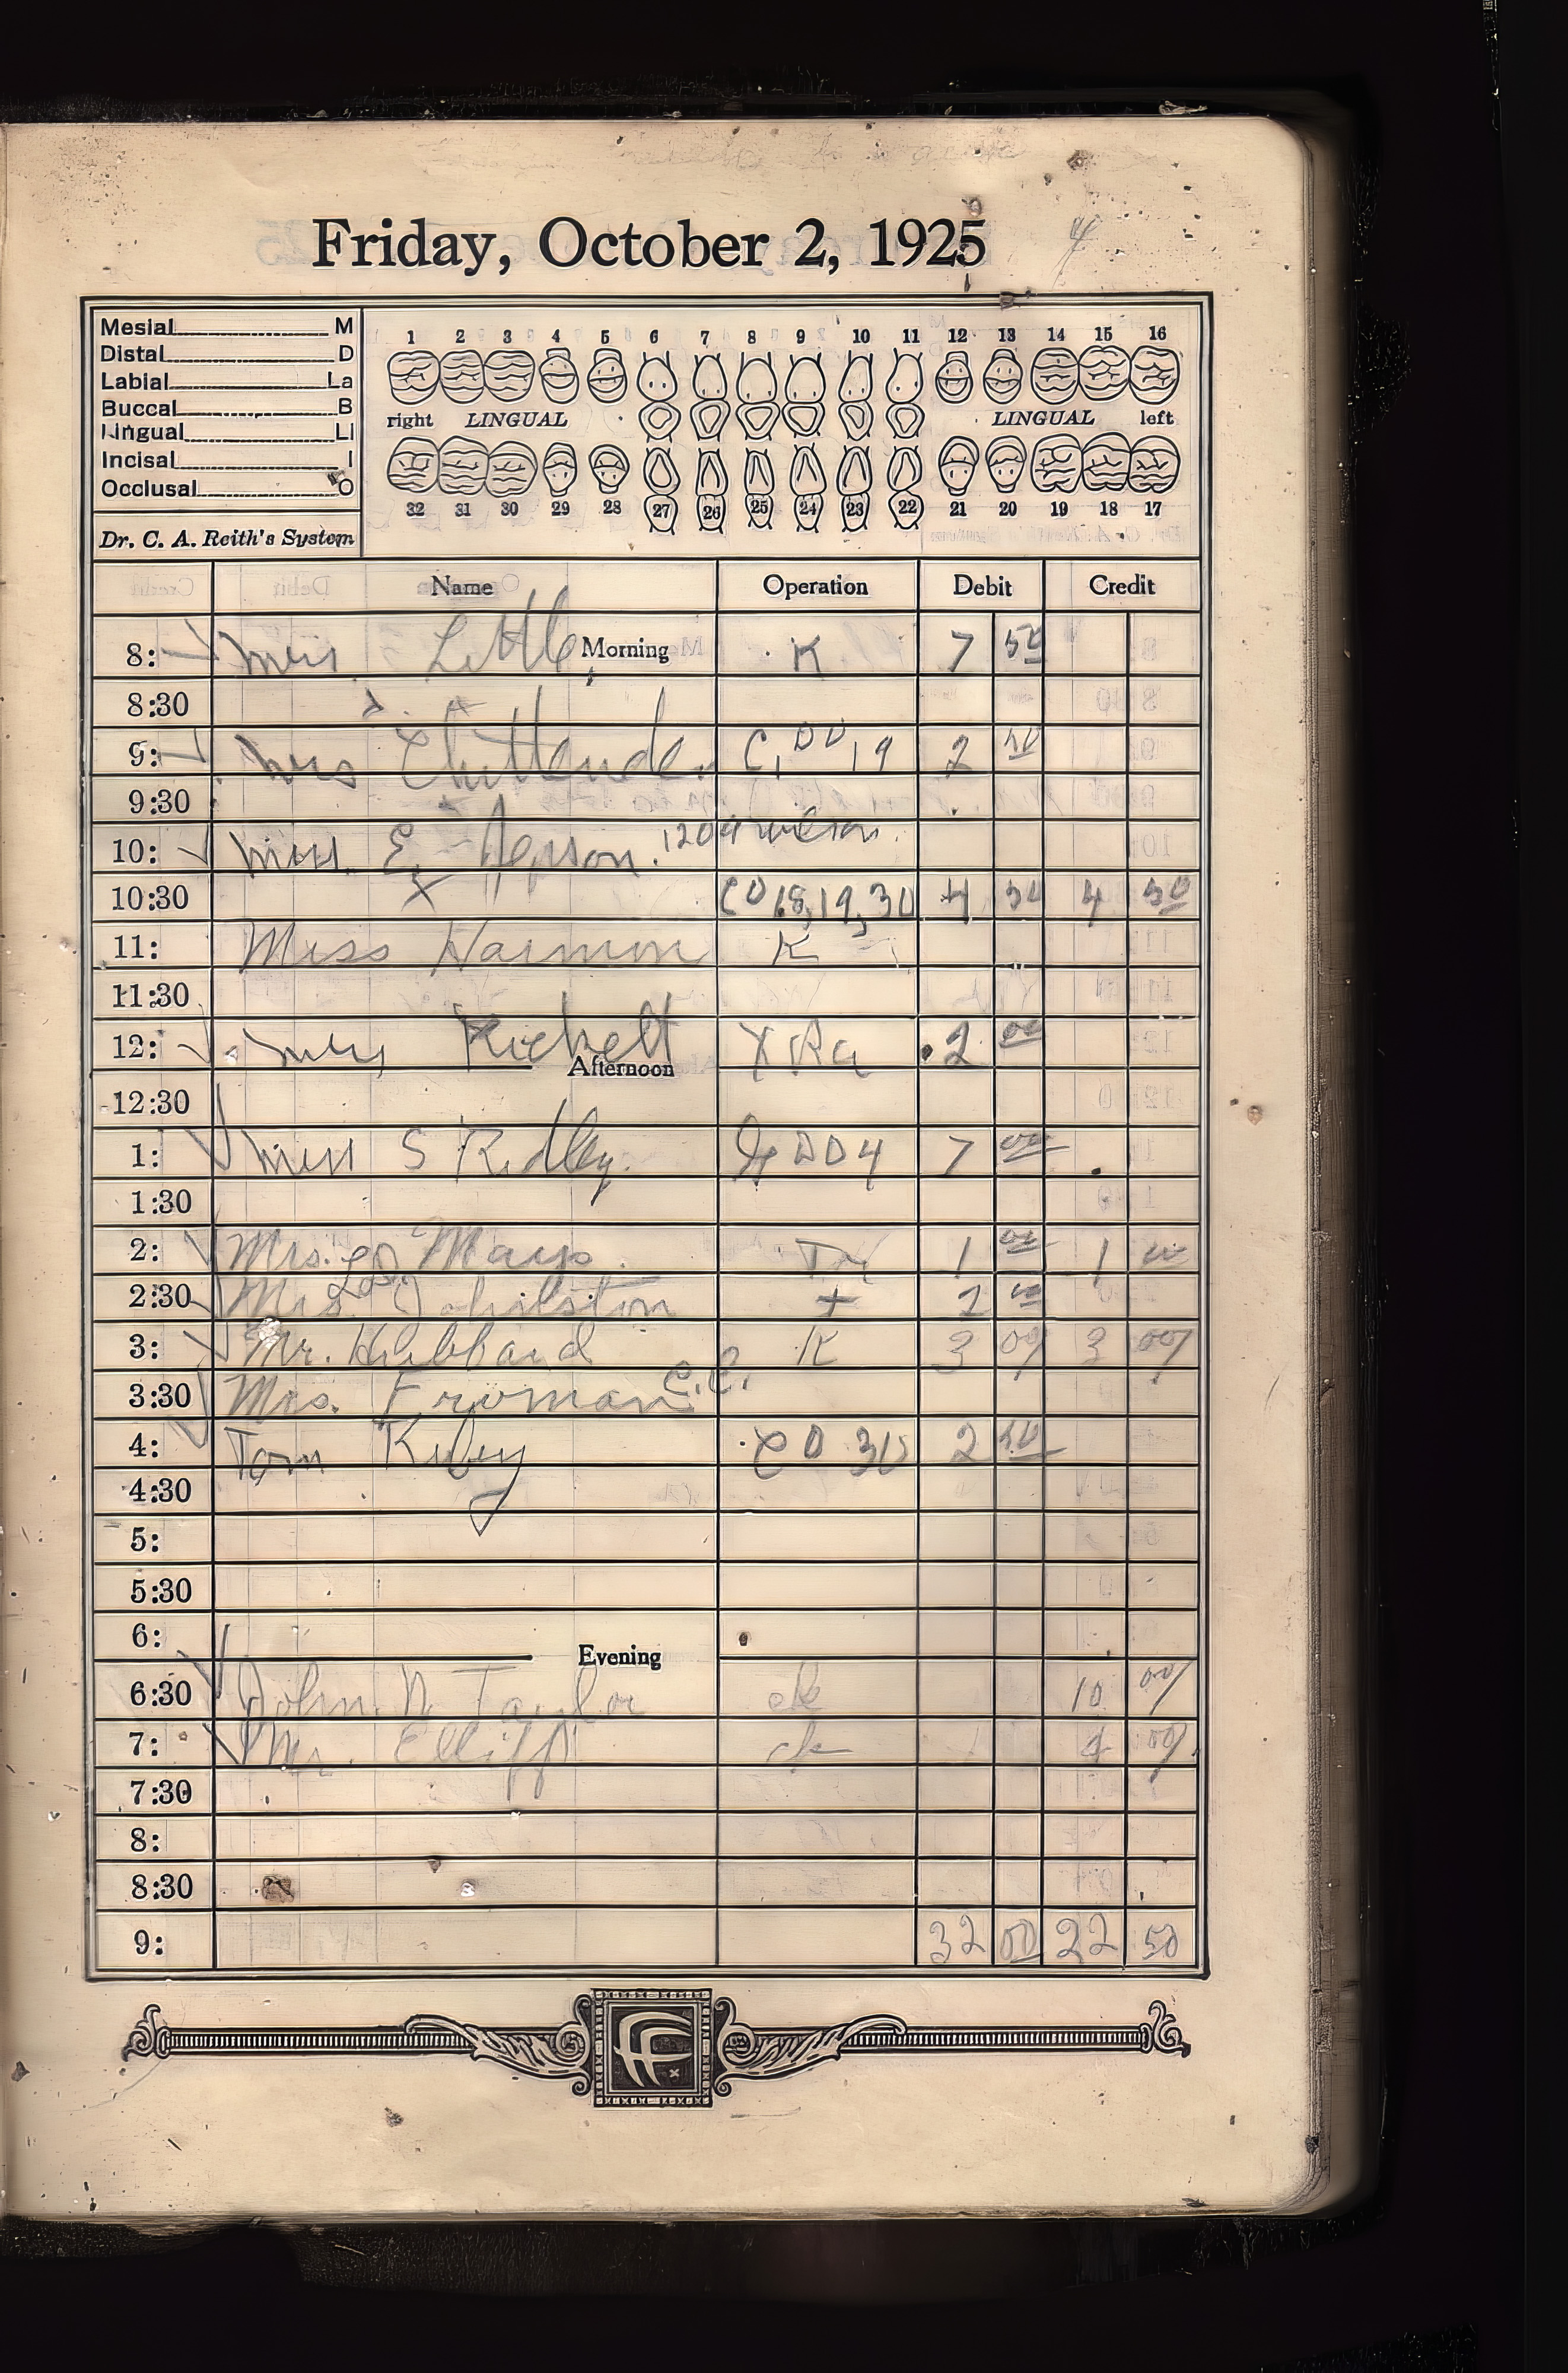 Friday, October 2, 1925
Mesial M
Distal D
Labial La
Buccal B
Lingual Li
Incisal I
Occlusal O
Dr. C. A. Reith's System
1 2 3 4 5 6 7 8 9 10 11 12 13 14 15 16
right LINGUAL LINGUAL left
32 31 30 29 28 27 26 25 24 23 22 21 20 19 18 17
Name Operation Debit Credit
8: Mrs Little Morning K 7 50
8:30
9: Mrs Chittenden C, DO, 19 2 50
9:30
10: Miss E. Jepson. 1204 Wilson
10:30 X CO 18, 19, 30 4 50 4 50
11: Miss Harmon K
11:30
12: Rickett X Ra 2 00
Afternoon
12:30
1: Miss S Ridley. DO 4 7 00
1:30
2: Mrs. L.D. Mays Tr 1 00 1 00
2:30 Mrs. Johnston + 2 00
3: Mr. Hubbard K 3 00 3 00
3:30 Mrs. Froman C.C.
4: Tom Kirby C O 30 2 50
4:30
5:
5:30
6:
Evening
6:30 John N Taylor ck 10 00
7: Mr. Elliff ck 4 00
7:30
8:
8:30
9: 32 00 22 50